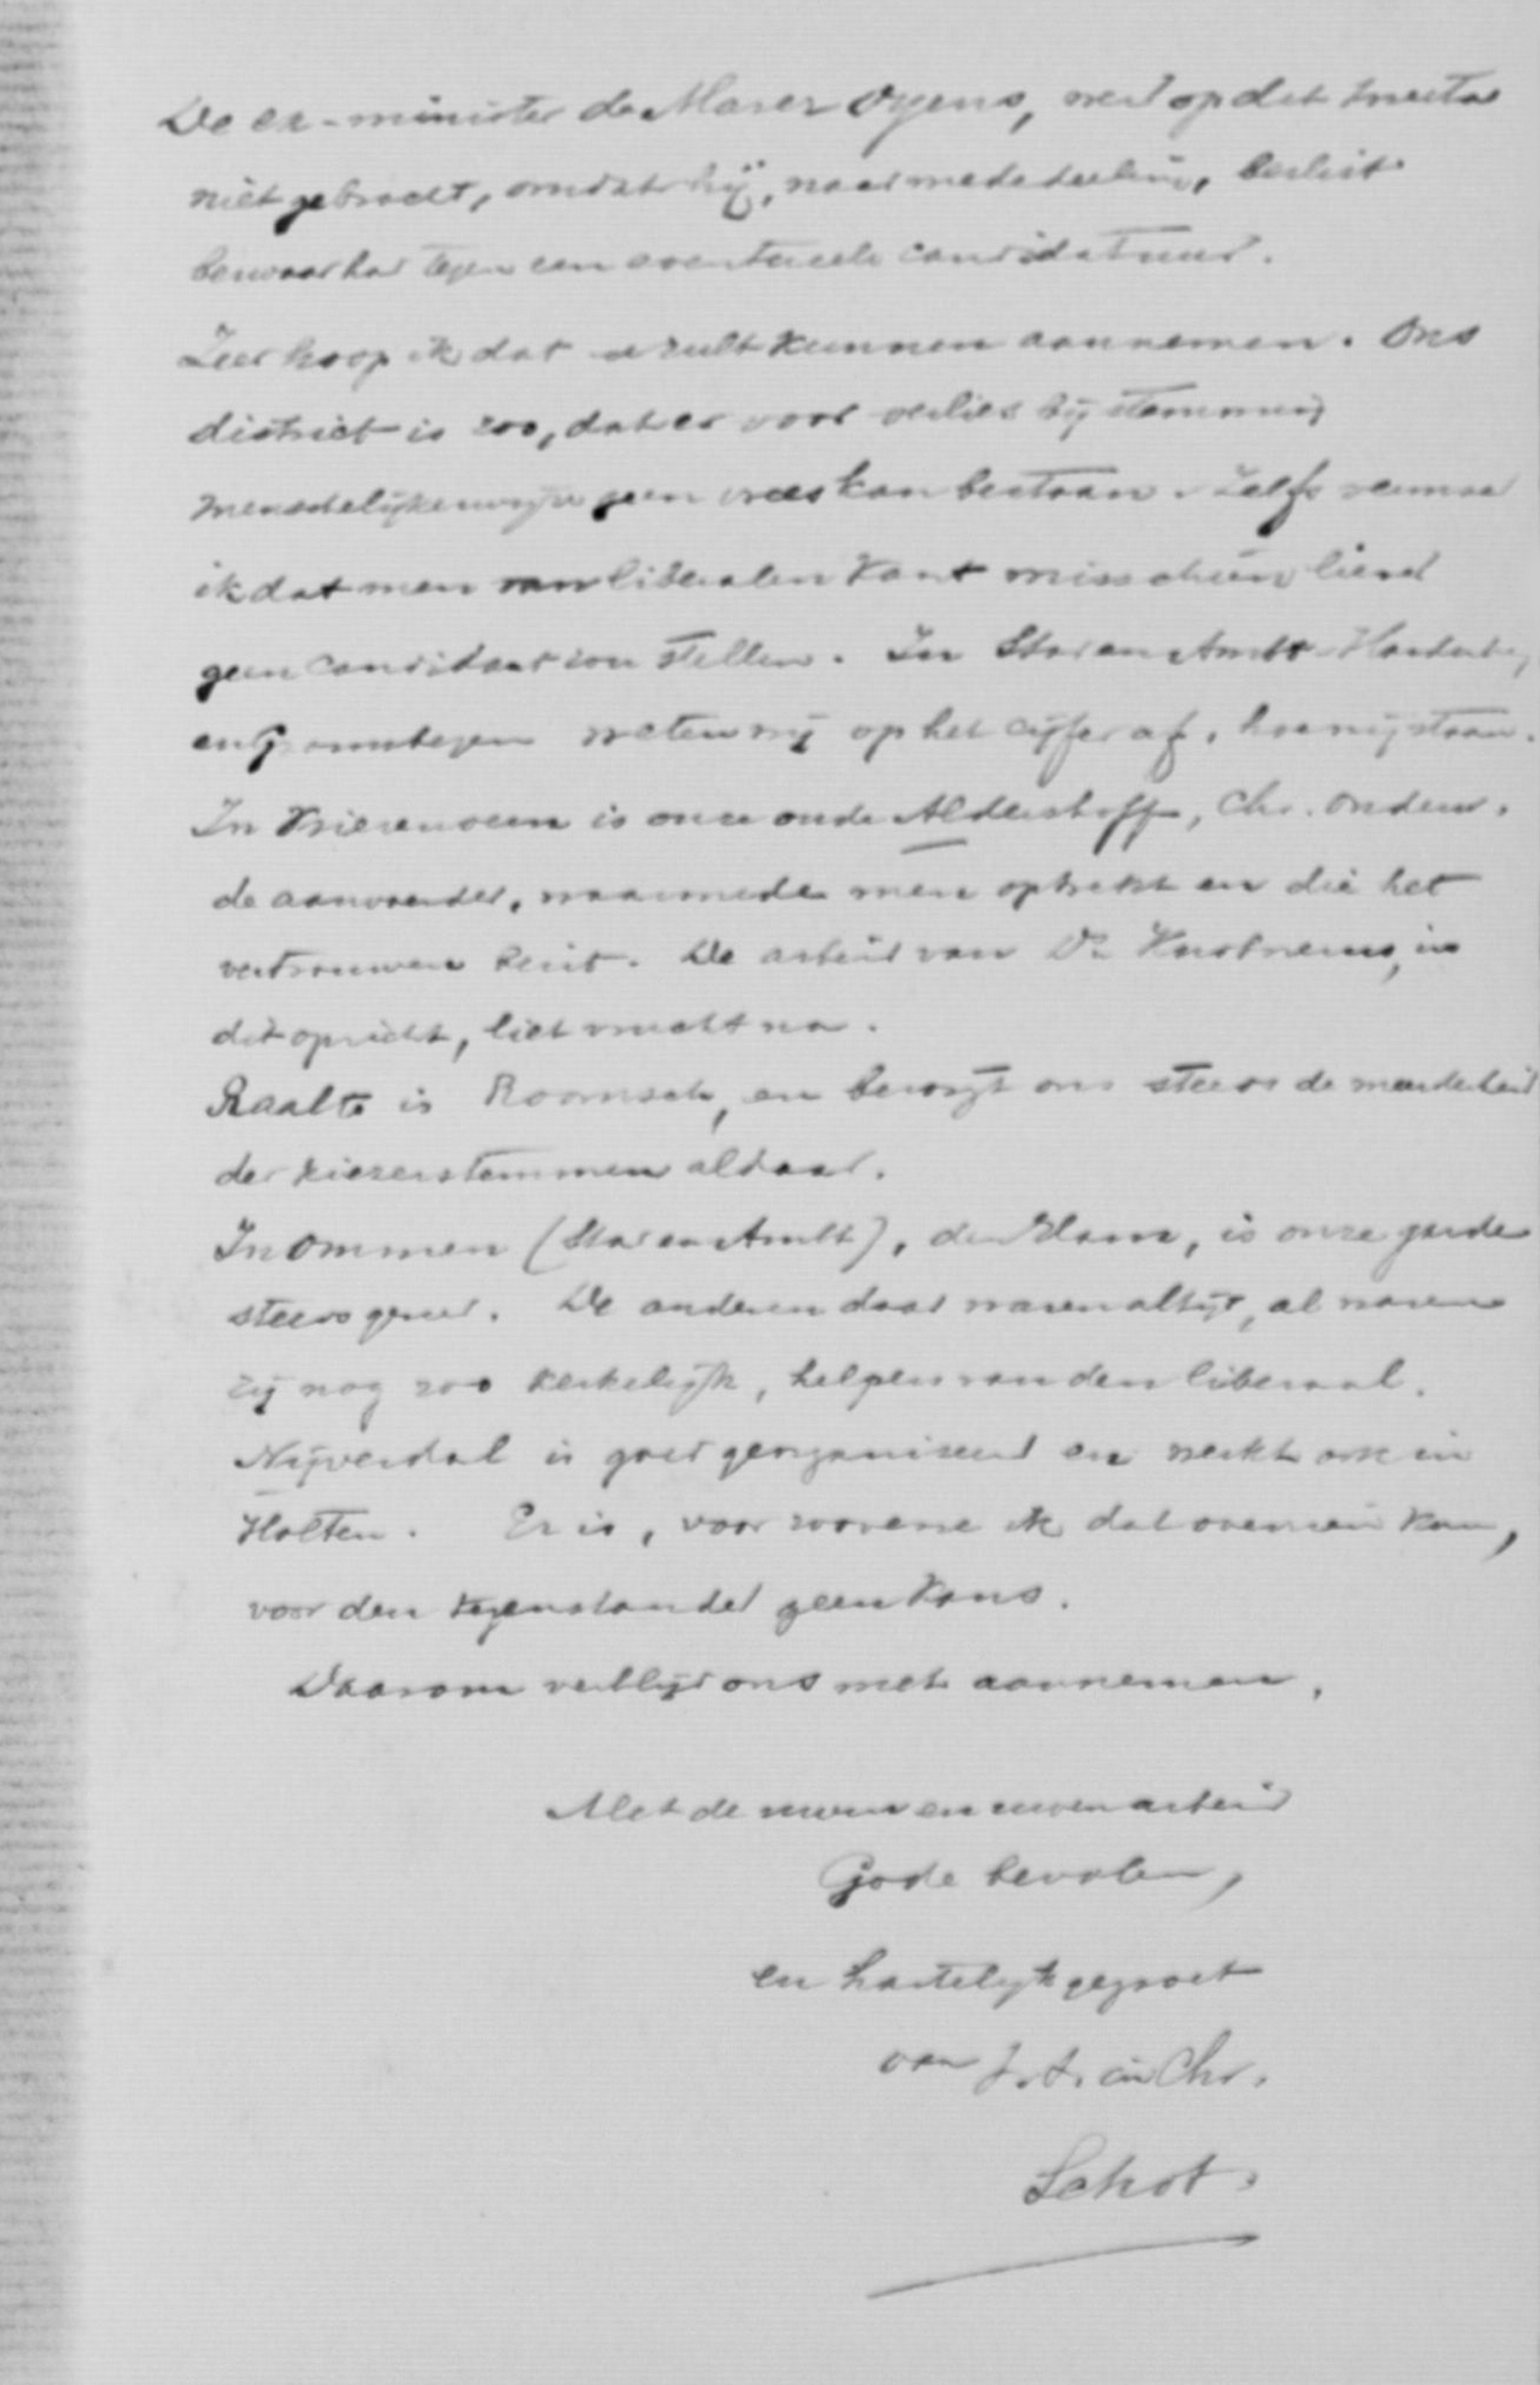 De ex-minister de Marez Oyens, werd op dit tweetal
niet gebracht, omdat hij, naar mededeeling, beslist
bezwaar had tegen een eventueele candidatuur.
Zeer hoop ik dat u zult kunnen aannemen. Ons
district is zoo, dat er voor verlies bij stemming
menschelijkerwijze geen vrees kan bestaan. Zelfs vermoed
ik dat men van liberalen kant misschien liever
geen candidaat zou stellen. In Stad en Ambt-Hardenberg
en Gramsbergen weten wij op het cijfer af, hoe wij staan.
In Vriezenveen is onze oude Aldershoff, Chr. onderw.
de aanvoerder, waarmede men optrekt en die het
vertrouwen bezit. De arbeid van Ds in
dit opzicht, liet vrucht na.
Raalte is Roomsch, en bezorgt ons steeds de meerderheid
der kiezerstemmen aldaar.
In Ommen (Stad en Ambt), den Ham, is onze garde
steeds gereed. De anderen daar waren altijd, al waren
zij nog zoo kerkelijk, helpers van den liberaal.
Nijverdal is goed georganiseerd en werkt ook in
Holten. Er is, voor zoover ik dat overzien kan,
voor den tegenstander geen kans.
Daarom verblijd ons met aannemen.
Met de uwen en uwen arbeid
Gode bevolen,
en hartelijk gegroet
van in Chr.
Schot.